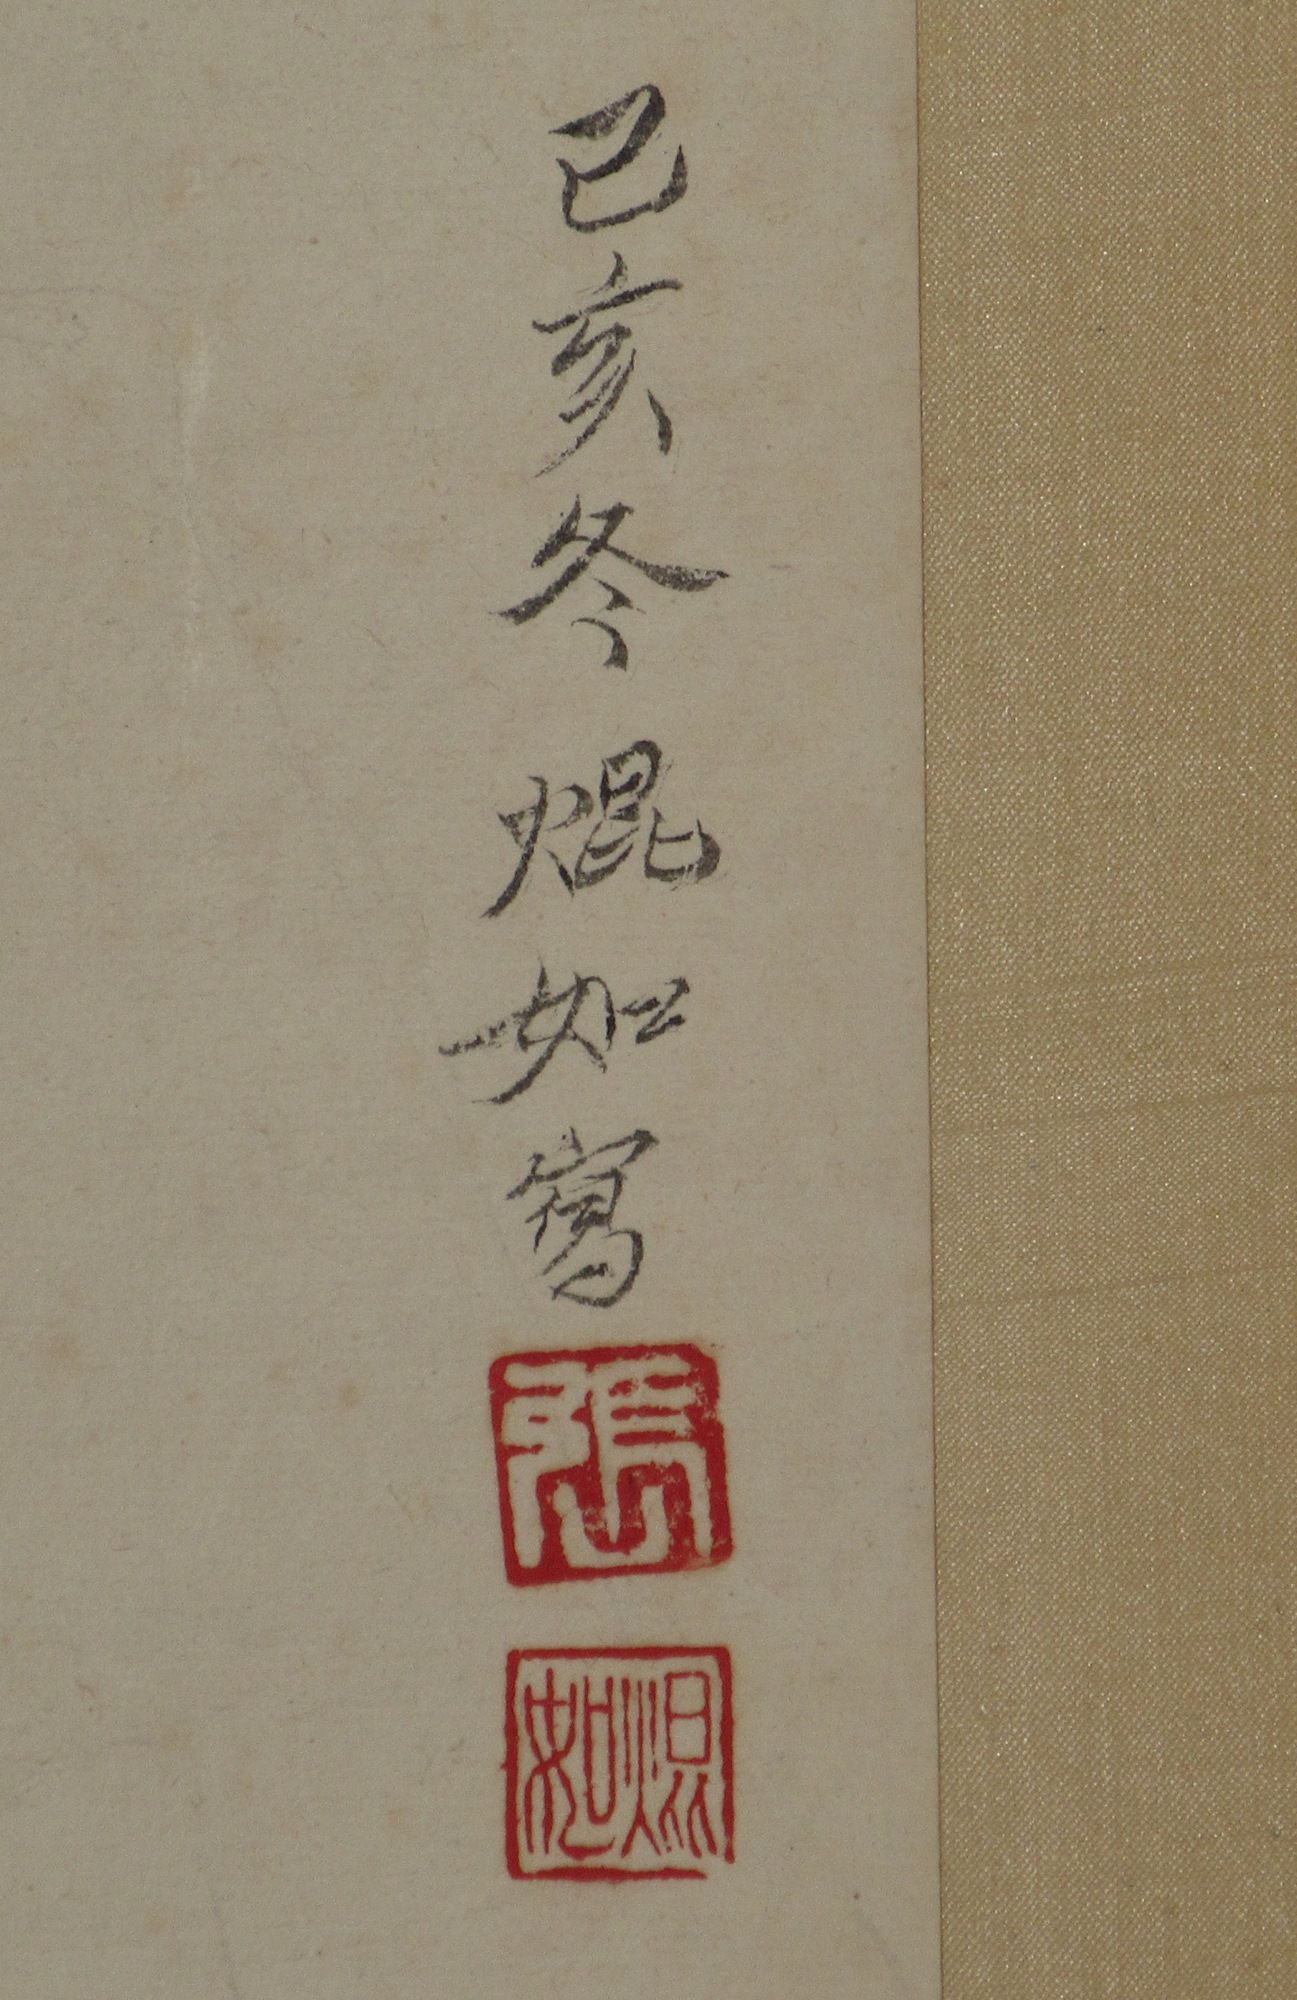 己亥冬焜如寫
張
焜如